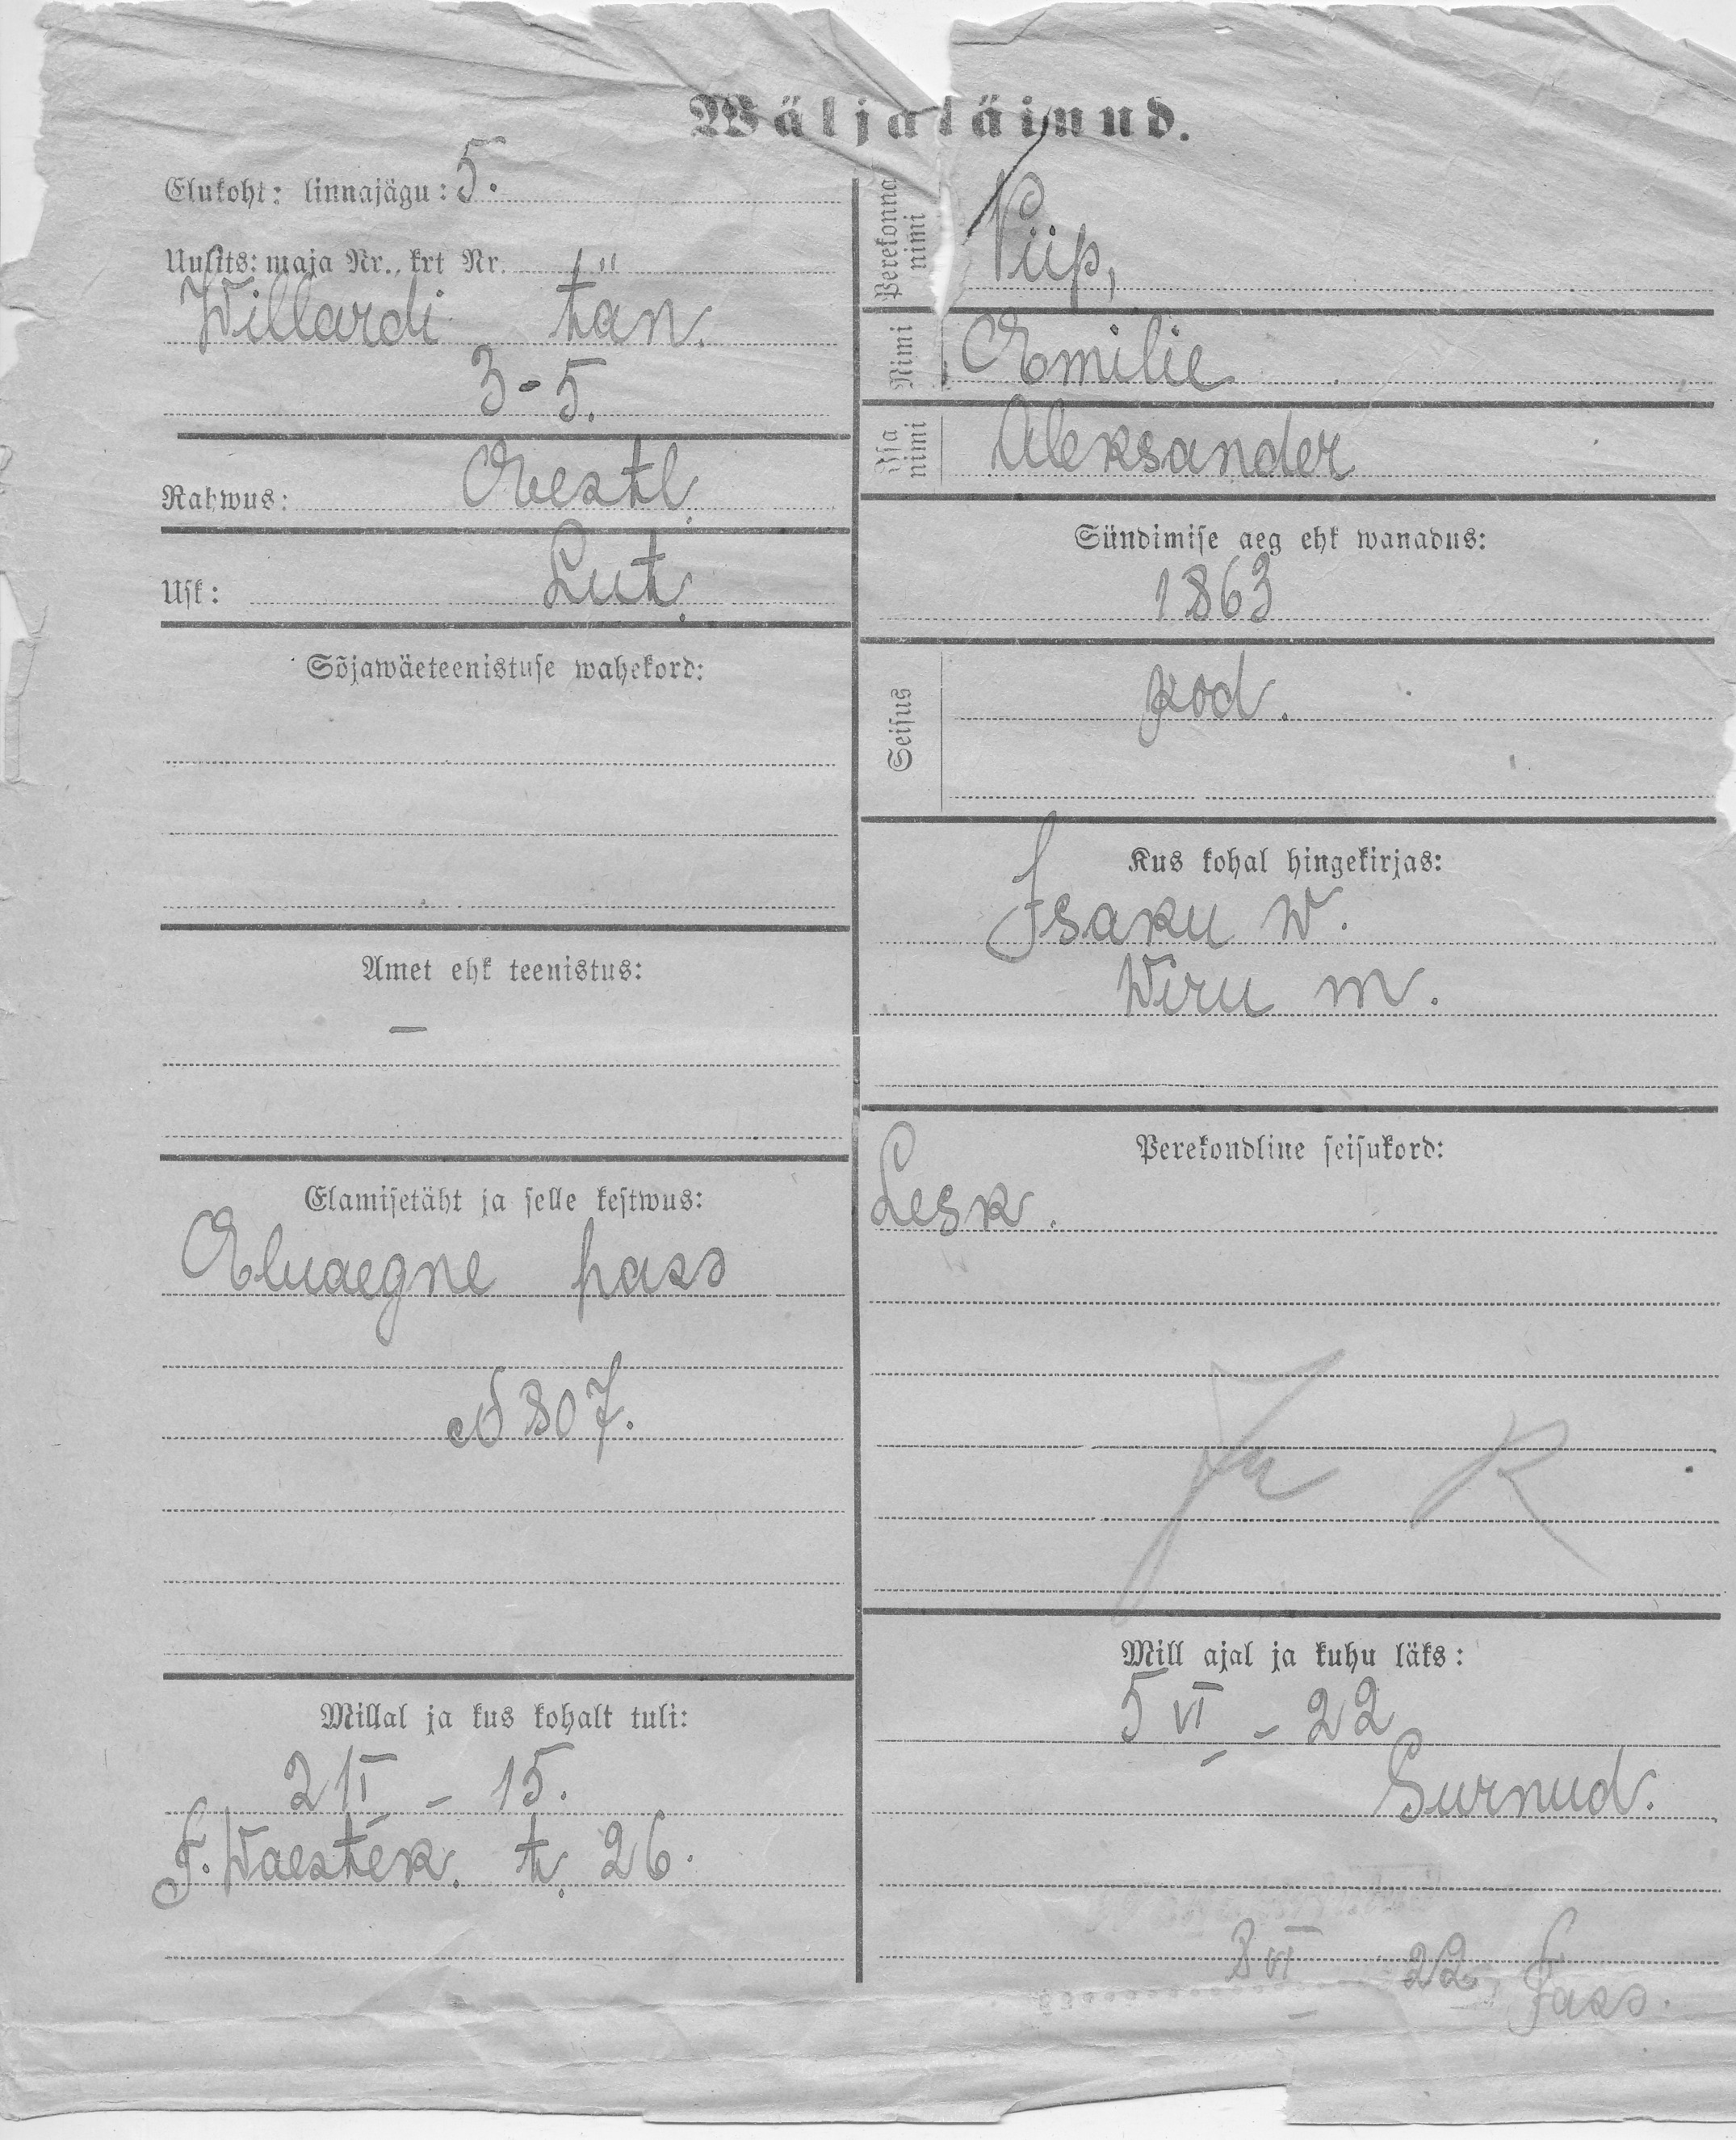 Wäljaläinud.
Elukoht: linnajägu: 5.
Uulits: maja Nr., krt Nr. "
Willardi tän.
3-5.
Rahwus: Eestl.
Usk: Lut.
Sõjawäeteenistuse wahekord:
Amet ehk teenistus:
—
Elamisetäht ja selle kestwus:
Eluaegne pass
№ 807.
Millal ja kus kohalt tuli:
2 II - 15.
F. Waestek. t. 26.
Perekonna nimi
Piip,
Nimi Emilie
Isa nimi Aleksander
Sündimise aeg ehk wanadus:
1863
Seisus kod.
Kus kohal hingekirjas:
Isaku w.
Wiru m.
Perekondline seisukord:
Lesk.
Mill ajal ja kuhu läks:
5 VI - 22
Surnud.
8 VI 22. Pass.